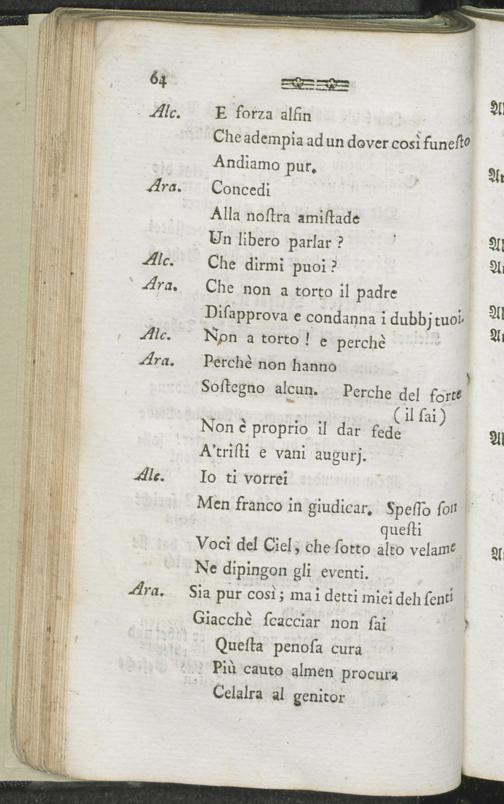 64
Alc. E forza alfin
Che adempia ad un dover così funeſto
Andiamo pur.
Ara. Concedi
Alla noſtra amiſtade
Un libero parlar ?
Alc. Che dirmi puoi ?
Ara. Che non a torto il padre
Diſapprova e condanna i dubbj tuoi.
Alc. Non a torto ! e perchè
Ara. Perchè non hanno
Soſtegno alcun. Perche del forte
( il ſai )
Non è proprio il dar fede
A'triſti e vani augurj.
Alc. Io ti vorrei
Men franco in giudicar. Speſſo ſon
queſti
Voci del Ciel, che ſotto alto velame
Ne dipingon gli eventi.
Ara. Sia pur così ; ma i detti miei deh ſenti
Giacchè ſcacciar non ſai
Queſta penoſa cura
Più cauto almen procura
Celalra al genitor